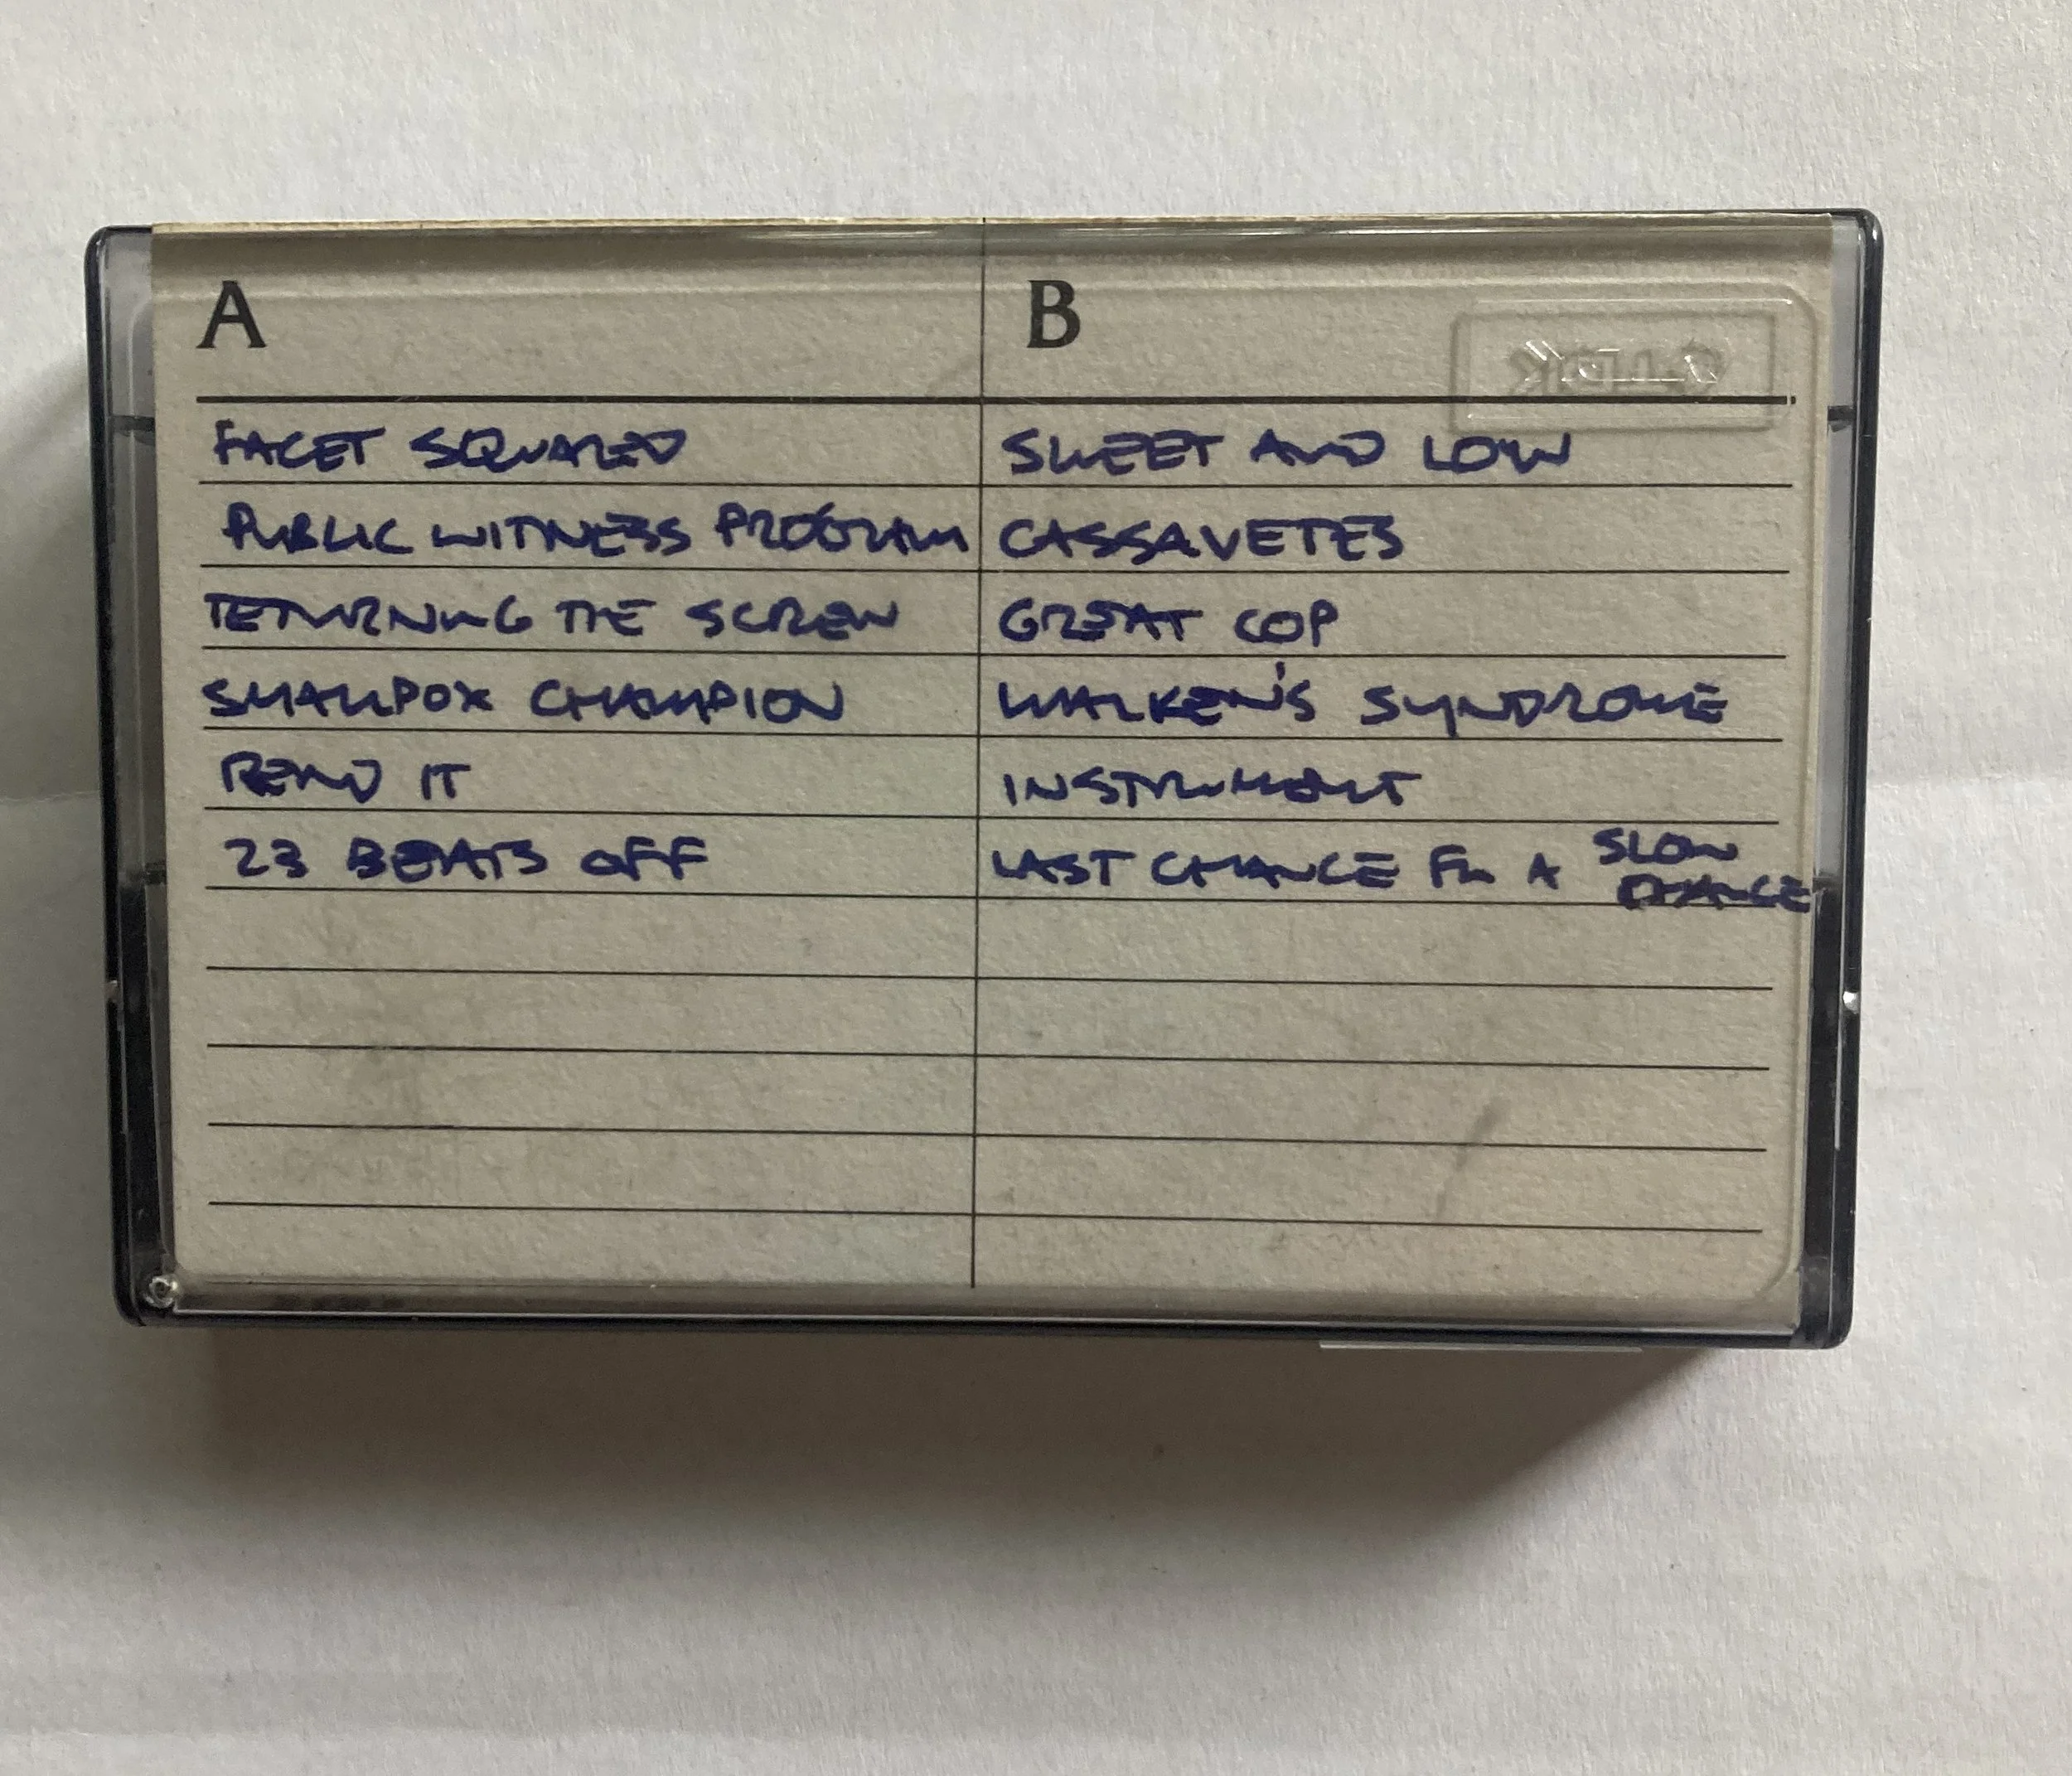 A
FACET SQUARED
PUBLIC WITNESS PROGRAM
RETURNING THE SCREW
SMALLPOX CHAMPION
REND IT
23 BEATS OFF
B
TDK
SWEET AND LOW
CASSAVETES
GREAT COP
WALKEN'S SYNDROME
INSTRUMENT
LAST CHANCE FOR A SLOW
DANCE